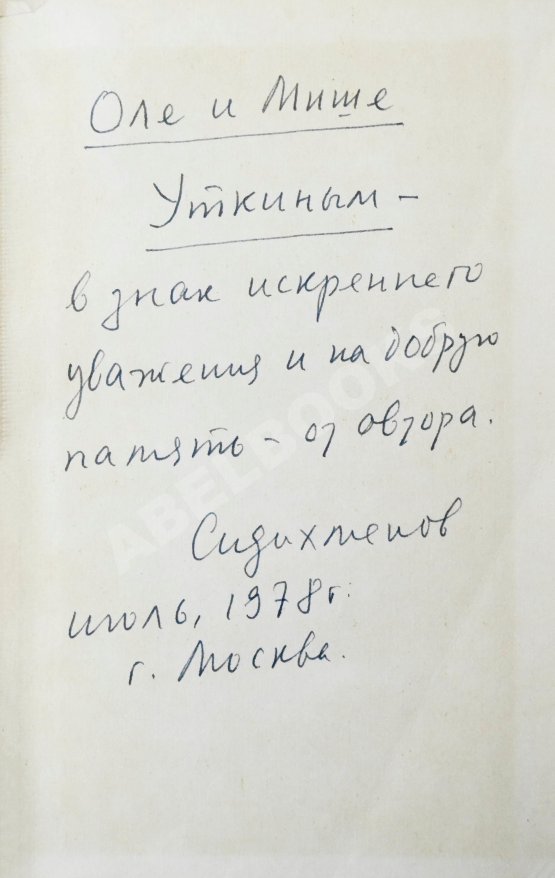 Оле и Мише
Уткиным –
в знак искреннего
уважения и на добрую
память – от автора.
Сидихменов
июль, 1978 г.
г. Москва.
ABELBOOKS